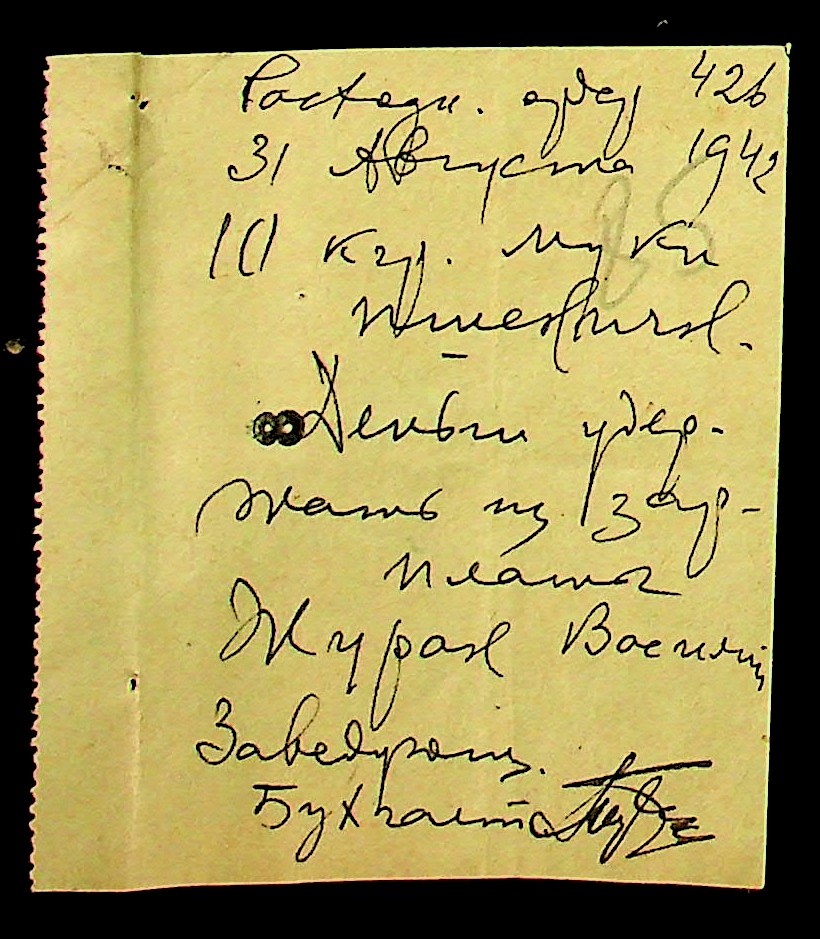 Расходн. ордер 426
31 Августа 1942
10 кгр. муки
пшеничной.
Деньги удер-
жать из зар-
платы
Журан Василий
Заведующ.
Бухгалт